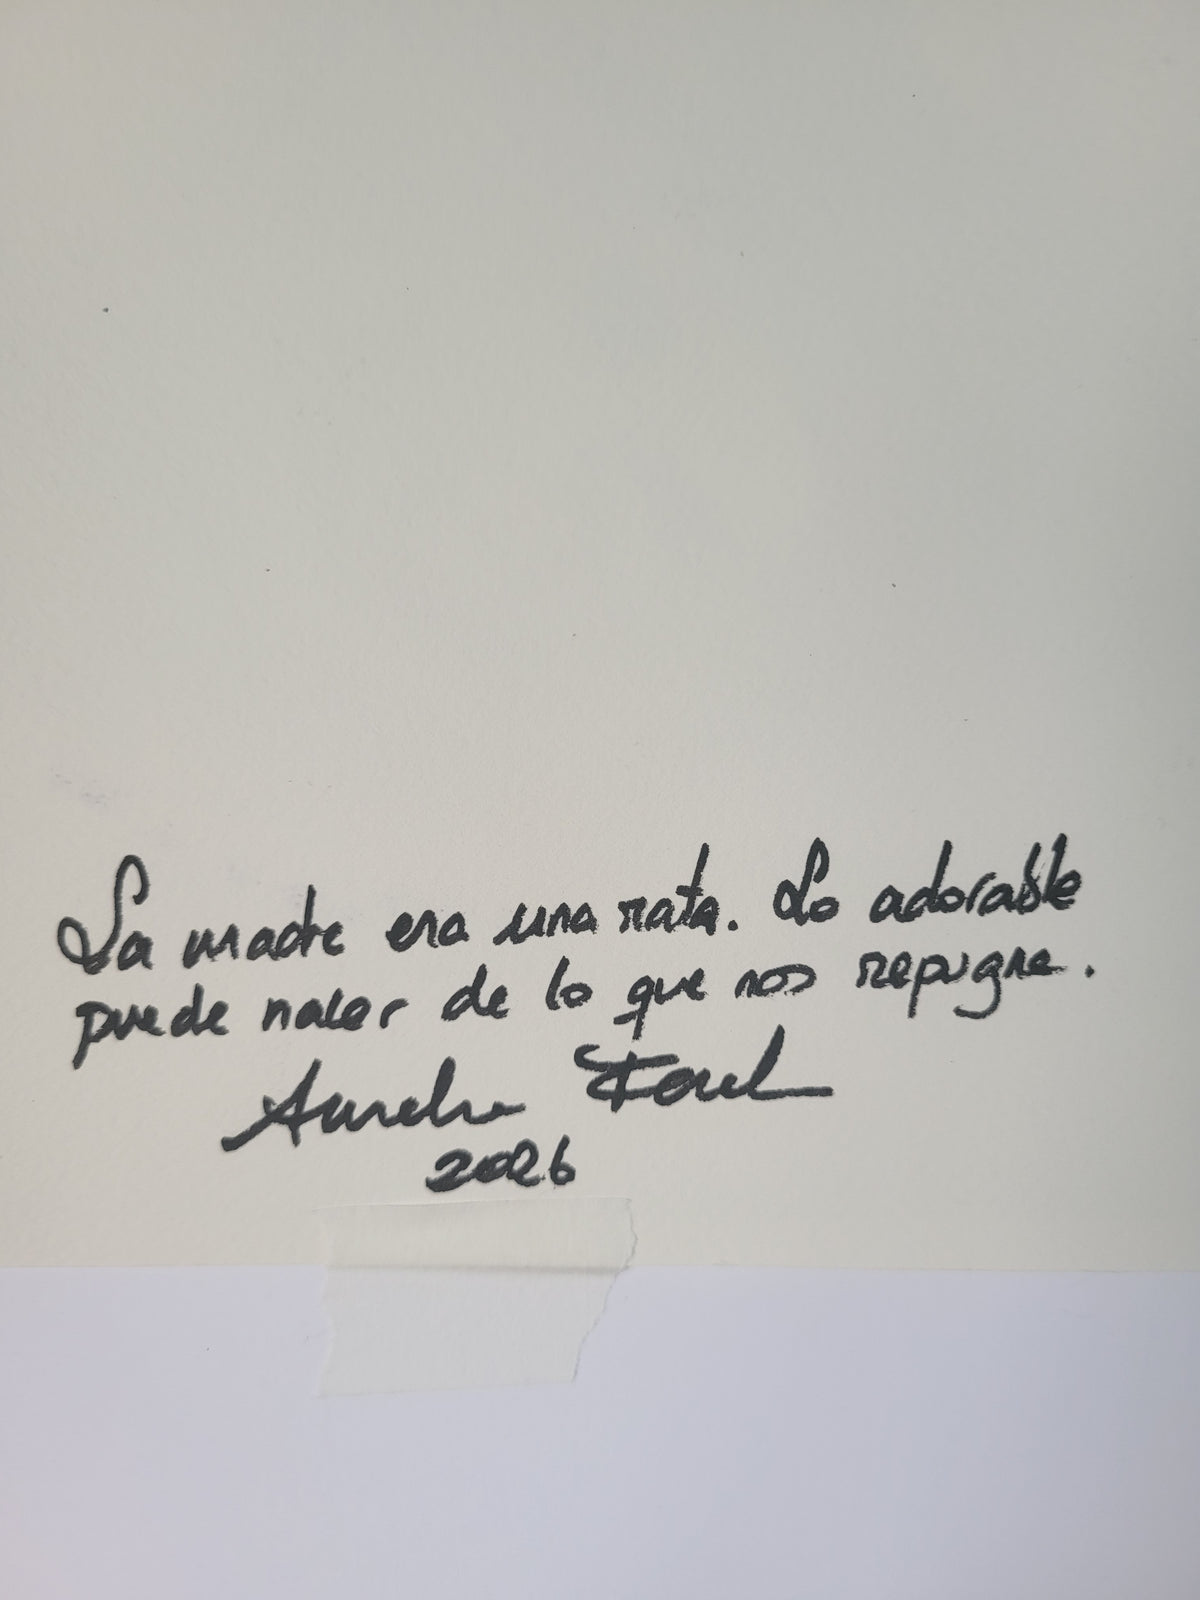 La madre era una rata. Lo adorable
puede nacer de lo que nos repugna.
2026